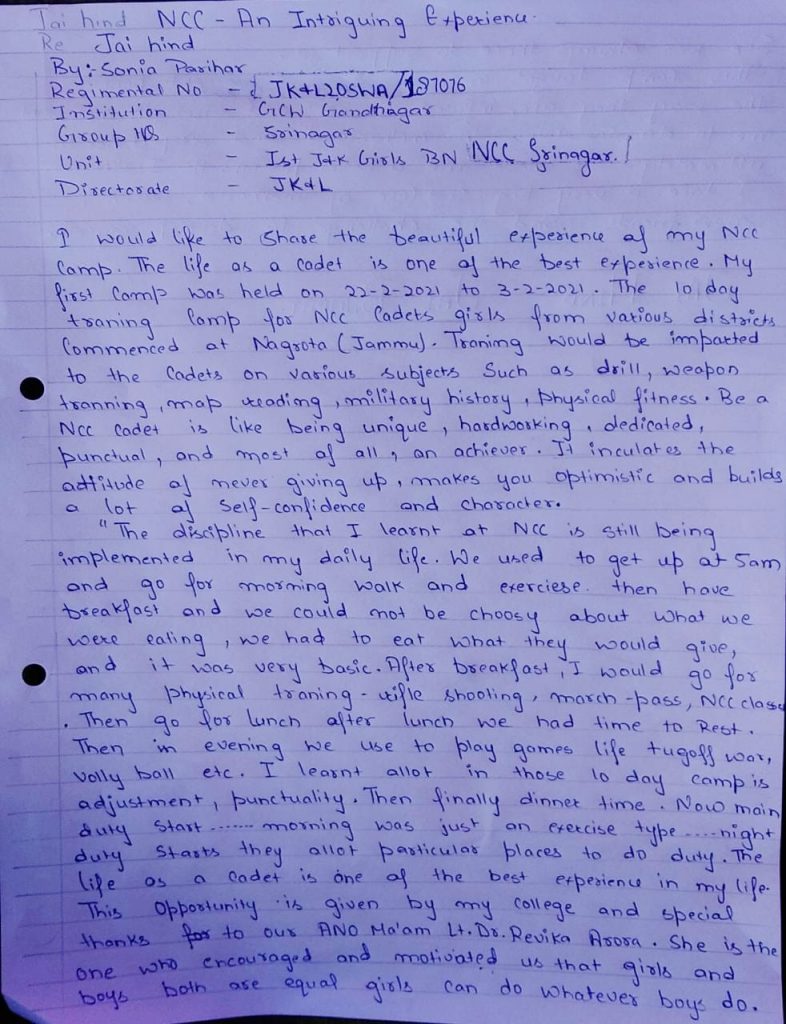 Jai hind NCC - An Intriguing Experience.
Re Jai hind
By: Sonia Parihar
Regimental No - JK&L20SWA/187076
Institution - GCW Gandhagar
Group HQ - Srinagar
Unit - Ist J&K Girls BN NCC Srinagar.
Directorate - JK&L
I would like to Share the beautiful experience of my NCC
Camp. The life as a cadet is one of the best experience. My
first Camp was held on 22-2-2021 to 3-2-2021. The 10 day
traning Camp for NCC Cadets girls from various districts
Commenced at Nagrota (Jammu). Traning would be imparted
to the Cadets on various subjects Such as drill, weapon
tranning, map reading, military history, physical fitness. Be a
NCC Cadet is like being unique, hardworking, dedicated,
punctual, and most of all, an achiever. It inculates the
adtitude of never giving up, makes you optimistic and builds
a lot of Self-confidence and character.
"The discipline that I learnt at NCC is still being
implemented in my daily life. We used to get up at 5am
and go for morning walk and exerciese. then have
breakfast and we could not be choosy about what we
were eating, we had to eat what they would give,
and it was very basic. After breakfast, I would go for
many physical traning - rifle shooting, march-pass, NCC class
. Then go for lunch after lunch we had time to Rest.
Then in evening we use to play games life tugoff war,
volly ball etc. I learnt allot in those 10 day camp is
adjustment, punctuality. Then finally dinner time. Now main
duty Start ....... morning was just an exercise type .....night
duty Starts they allot particular places to do duty. The
life as a Cadet is one of the best experience in my life.
This Opportunity is given by my college and special
thanks for to our ANO Ma'am Lt. Dr. Revika Arora. She is the
one who encouraged and motivated us that girls and
boys both are equal girls can do whatever boys do.